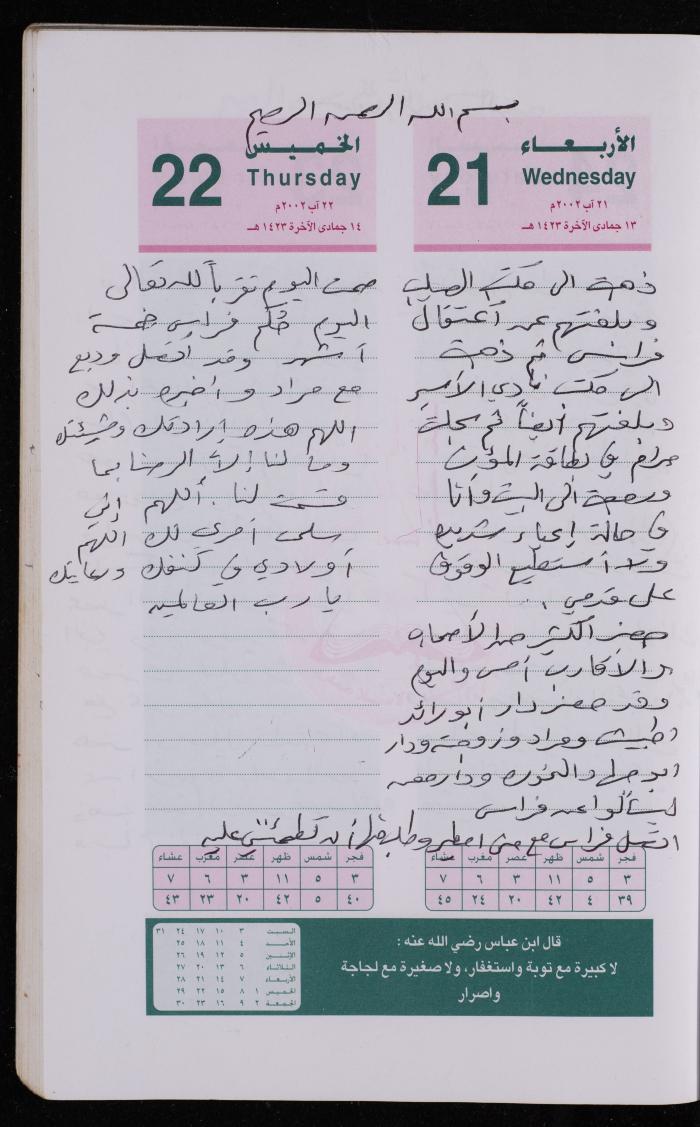 بسم الله الرحمن الرحيم
الأربعاء
21
Wednesday
٢١ آب ٢٠٠٢م
١٣ جمادى الآخرة ١٤٢٣ هـ
ذهبت الى مكتب الصليب
وبلغتهم عن اعتقال
فراس ثم ذهبت
الى مكتب نادي الأسير
وبلغتهم أيضاً ثم سجلت
مرام في بطاقة المؤن
ورجعت الى البيت وأنا
في حالة إعياء شديد
ولا أستطيع الوقوف
على قدمي .
حضر الكثير من الأصحاب
والأقارب أمس واليوم
وقد حضر دار أبو رائد
ومراد وزوجته ودار
ودار
ليسألوا عن فراس
اتصل فراس مع وطلب منها أن تطمئن عليه
الخميس
22
Thursday
٢٢ آب ٢٠٠٢م
١٤ جمادى الآخرة ١٤٢٣ هـ
صمت اليوم تقرباً لله تعالى
اليوم حُكم فراس خمسة
أشهر وقد اتصل وديع
مع مراد وأخبره بذلك
اللهم هذه إرادتك ومشيئتك
وما لنا إلا الرضا بما
قسمت لنا . اللهم إني
سلمت أمري لك اللهم
أولادي في كنفك ورعايتك
يا رب العالمين
فجر شمس ظهر عصر مغرب عشاء
٣ ٥ ١١ ٣ ٦ ٧
٣٩ ٤ ٤٢ ٢٠ ٢٤ ٤٥
فجر شمس ظهر عصر مغرب عشاء
٣ ٥ ١١ ٣ ٦ ٧
٤٠ ٥ ٤٢ ٢٠ ٢٣ ٤٣
قال ابن عباس رضي الله عنه :
لا كبيرة مع توبة واستغفار، ولا صغيرة مع لجاجة
واصرار
السبت ٣ ١٠ ١٧ ٢٤ ٣١
الأحد ٤ ١١ ١٨ ٢٥
الإثنين ٥ ١٢ ١٩ ٢٦
الثلاثاء ٦ ١٣ ٢٠ ٢٧
الأربعاء ٧ ١٤ ٢١ ٢٨
الخميس ١ ٨ ١٥ ٢٢ ٢٩
الجمعة ٢ ٩ ١٦ ٢٣ ٣٠